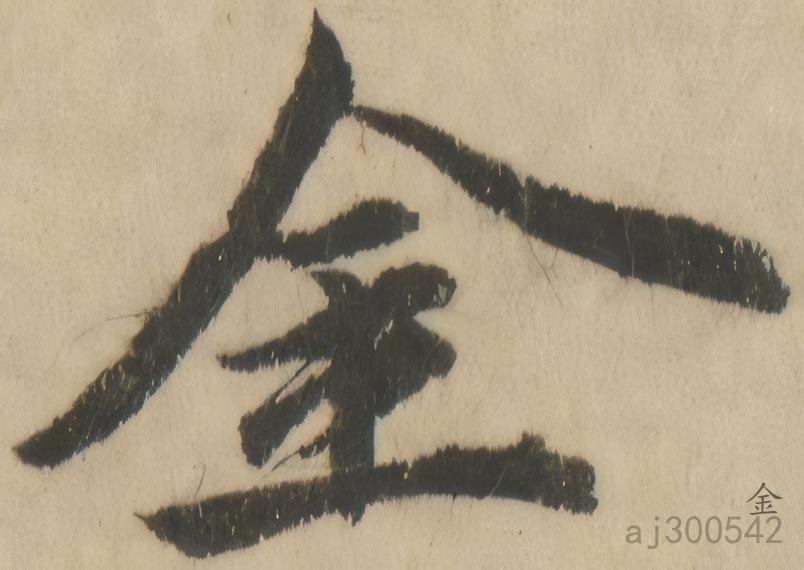 金
金
aj300542